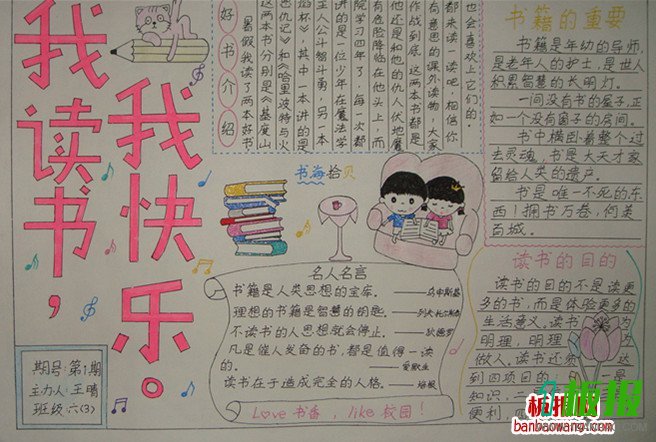 我读书，
我快乐。
期号：第1期
主力人：王晴
班级：六(3)
好书介绍
暑假我读了两本好书
这两本书分别是《基度山
仇记》和《哈里波特与火
焰杯》，其中一本讲的是
主人公斗智斗勇，另一本
讲的是一位少年在魔法学
院学习四年了，每一次都
有危险降临在他头上，而
他还是和他的仇人伏地魔
作战到底。这两本书都是
有意思的课外读物，大家
都来读一读吧，相信你
也会喜欢上它们的。
书海拾贝
名人名言
书籍是人类思想的宝库。——乌申斯基
理想的书籍是智慧的钥匙。——列夫·托尔斯泰
不读书的人思想就会停止。——狄德罗
凡是催人发奋的书，都是值得一读
的。——爱默生
读书在于造成完全的人格。——培根
Love书香，like校园！
书籍的重要
书籍是年幼的导师，
是老年人的护士，是世人
积累智慧的长明灯。
一间没有书的屋子，正
如一个没有窗子的房间。
书中横卧着整个过
去灵魂，书是大天才家
留给人类的遗产。
书是唯一不死的东
西！拥书万卷，何类
百城。
读书的目的
读书的目的不是读更
多的书，而是体验更多的
生活意义。读书 为
明理，明理 为
做人。读书还 达
到四项目的： 是
知识，
便利
板报网
banbaowang.com